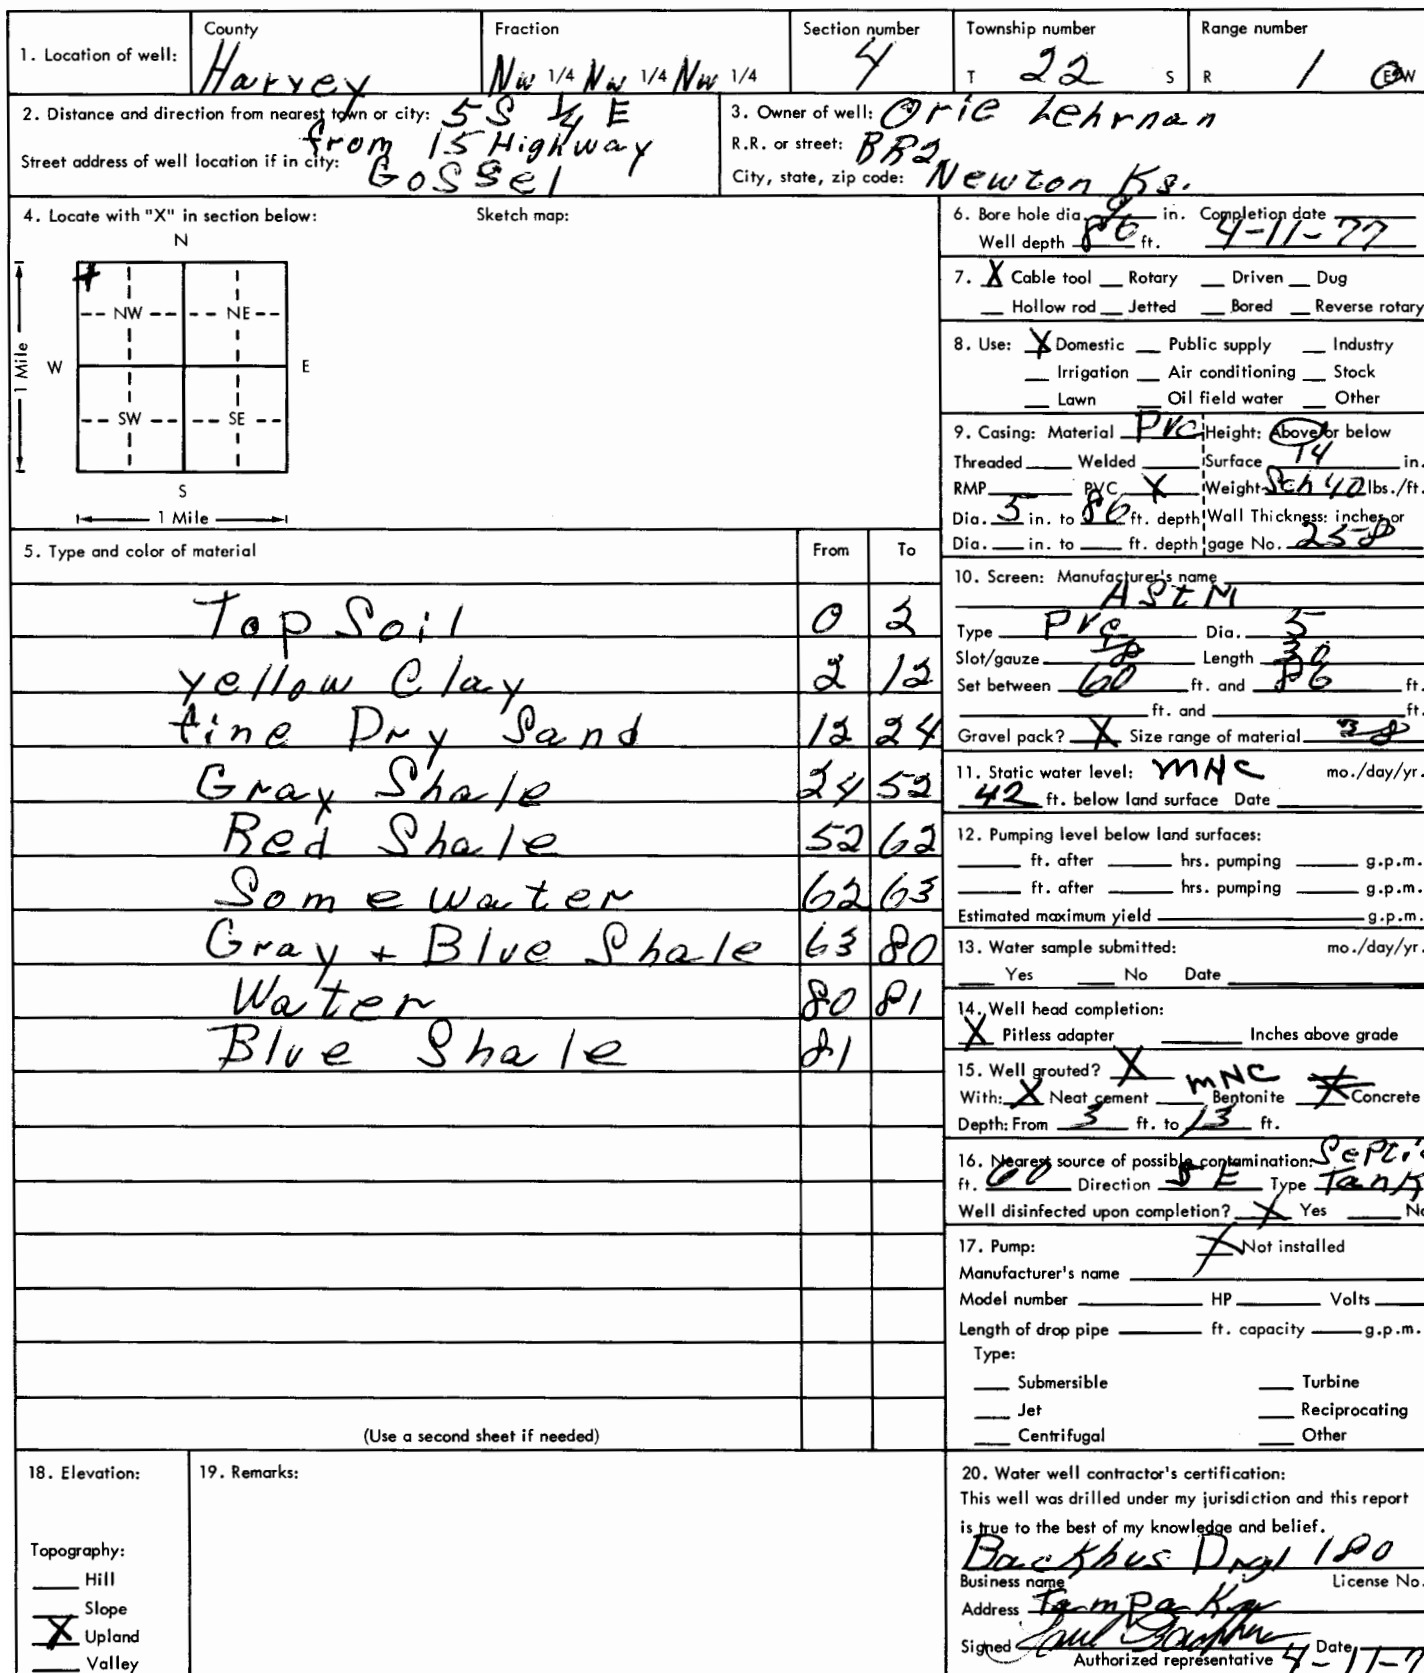 County
Fraction
Section number
Township number
Range number
1. Location of well:
Harvey
Nw 1/4 Nw 1/4 Nw 1/4
4
T 22 S
R 1 E W
2. Distance and direction from nearest town or city: 5 S 1/4 E
from 15 Highway
Street address of well location if in city:
GoSSel
3. Owner of well: Orie Lehrman
R.R. or street: RR2
City, state, zip code: Newton Ks.
4. Locate with "X" in section below:
Sketch map:
N
NW NE
W E
1 Mile
SW SE
S
1 Mile
5. Type and color of material From To
Top Soil 0 2
yellow Clay 2 12
fine Dry Sand 12 24
Gray Shale 24 52
Red Shale 52 62
Some water 62 63
Gray + Blue Shale 63 80
Water 80 81
Blue Shale 81
(Use a second sheet if needed)
6. Bore hole dia. 9 in. Completion date
Well depth 86 ft. 4-11-77
7. X Cable tool __ Rotary __ Driven __ Dug
__ Hollow rod __ Jetted __ Bored __ Reverse rotary
8. Use: X Domestic __ Public supply __ Industry
__ Irrigation __ Air conditioning __ Stock
__ Lawn __ Oil field water __ Other
9. Casing: Material PVC Height: Above or below
Threaded __ Welded __ Surface 14 in.
RMP __ PVC X Weight Sch 40 lbs./ft.
Dia. 5 in. to 86 ft. depth Wall Thickness: inches or
Dia. __ in. to __ ft. depth gage No. 258
10. Screen: Manufacturer's name
AStM
Type PVC Dia. 5
Slot/gauze 1/8 Length 30
Set between 60 ft. and 86 ft.
__ ft. and __ ft.
Gravel pack? X Size range of material
11. Static water level: MHC mo./day/yr.
42 ft. below land surface Date
12. Pumping level below land surfaces:
__ ft. after __ hrs. pumping __ g.p.m.
__ ft. after __ hrs. pumping __ g.p.m.
Estimated maximum yield __ g.p.m.
13. Water sample submitted: mo./day/yr.
__ Yes __ No Date
14. Well head completion:
X Pitless adapter __ Inches above grade
15. Well grouted? X
MNC
With: X Neat cement __ Bentonite X Concrete
Depth: From 3 ft. to 13 ft.
16. Nearest source of possible contamination: Septic
ft. 60 Direction SE Type Tank
Well disinfected upon completion? X Yes __ No
17. Pump: X Not installed
Manufacturer's name
Model number __ HP __ Volts __
Length of drop pipe __ ft. capacity __ g.p.m.
Type:
__ Submersible __ Turbine
__ Jet __ Reciprocating
__ Centrifugal __ Other
18. Elevation:
Topography:
__ Hill
__ Slope
X Upland
__ Valley
19. Remarks:
20. Water well contractor's certification:
This well was drilled under my jurisdiction and this report
is true to the best of my knowledge and belief.
Backhus Drgl 180
Business name License No.
Address Tampa Ks
Signed Date
Authorized representative 4-11-7